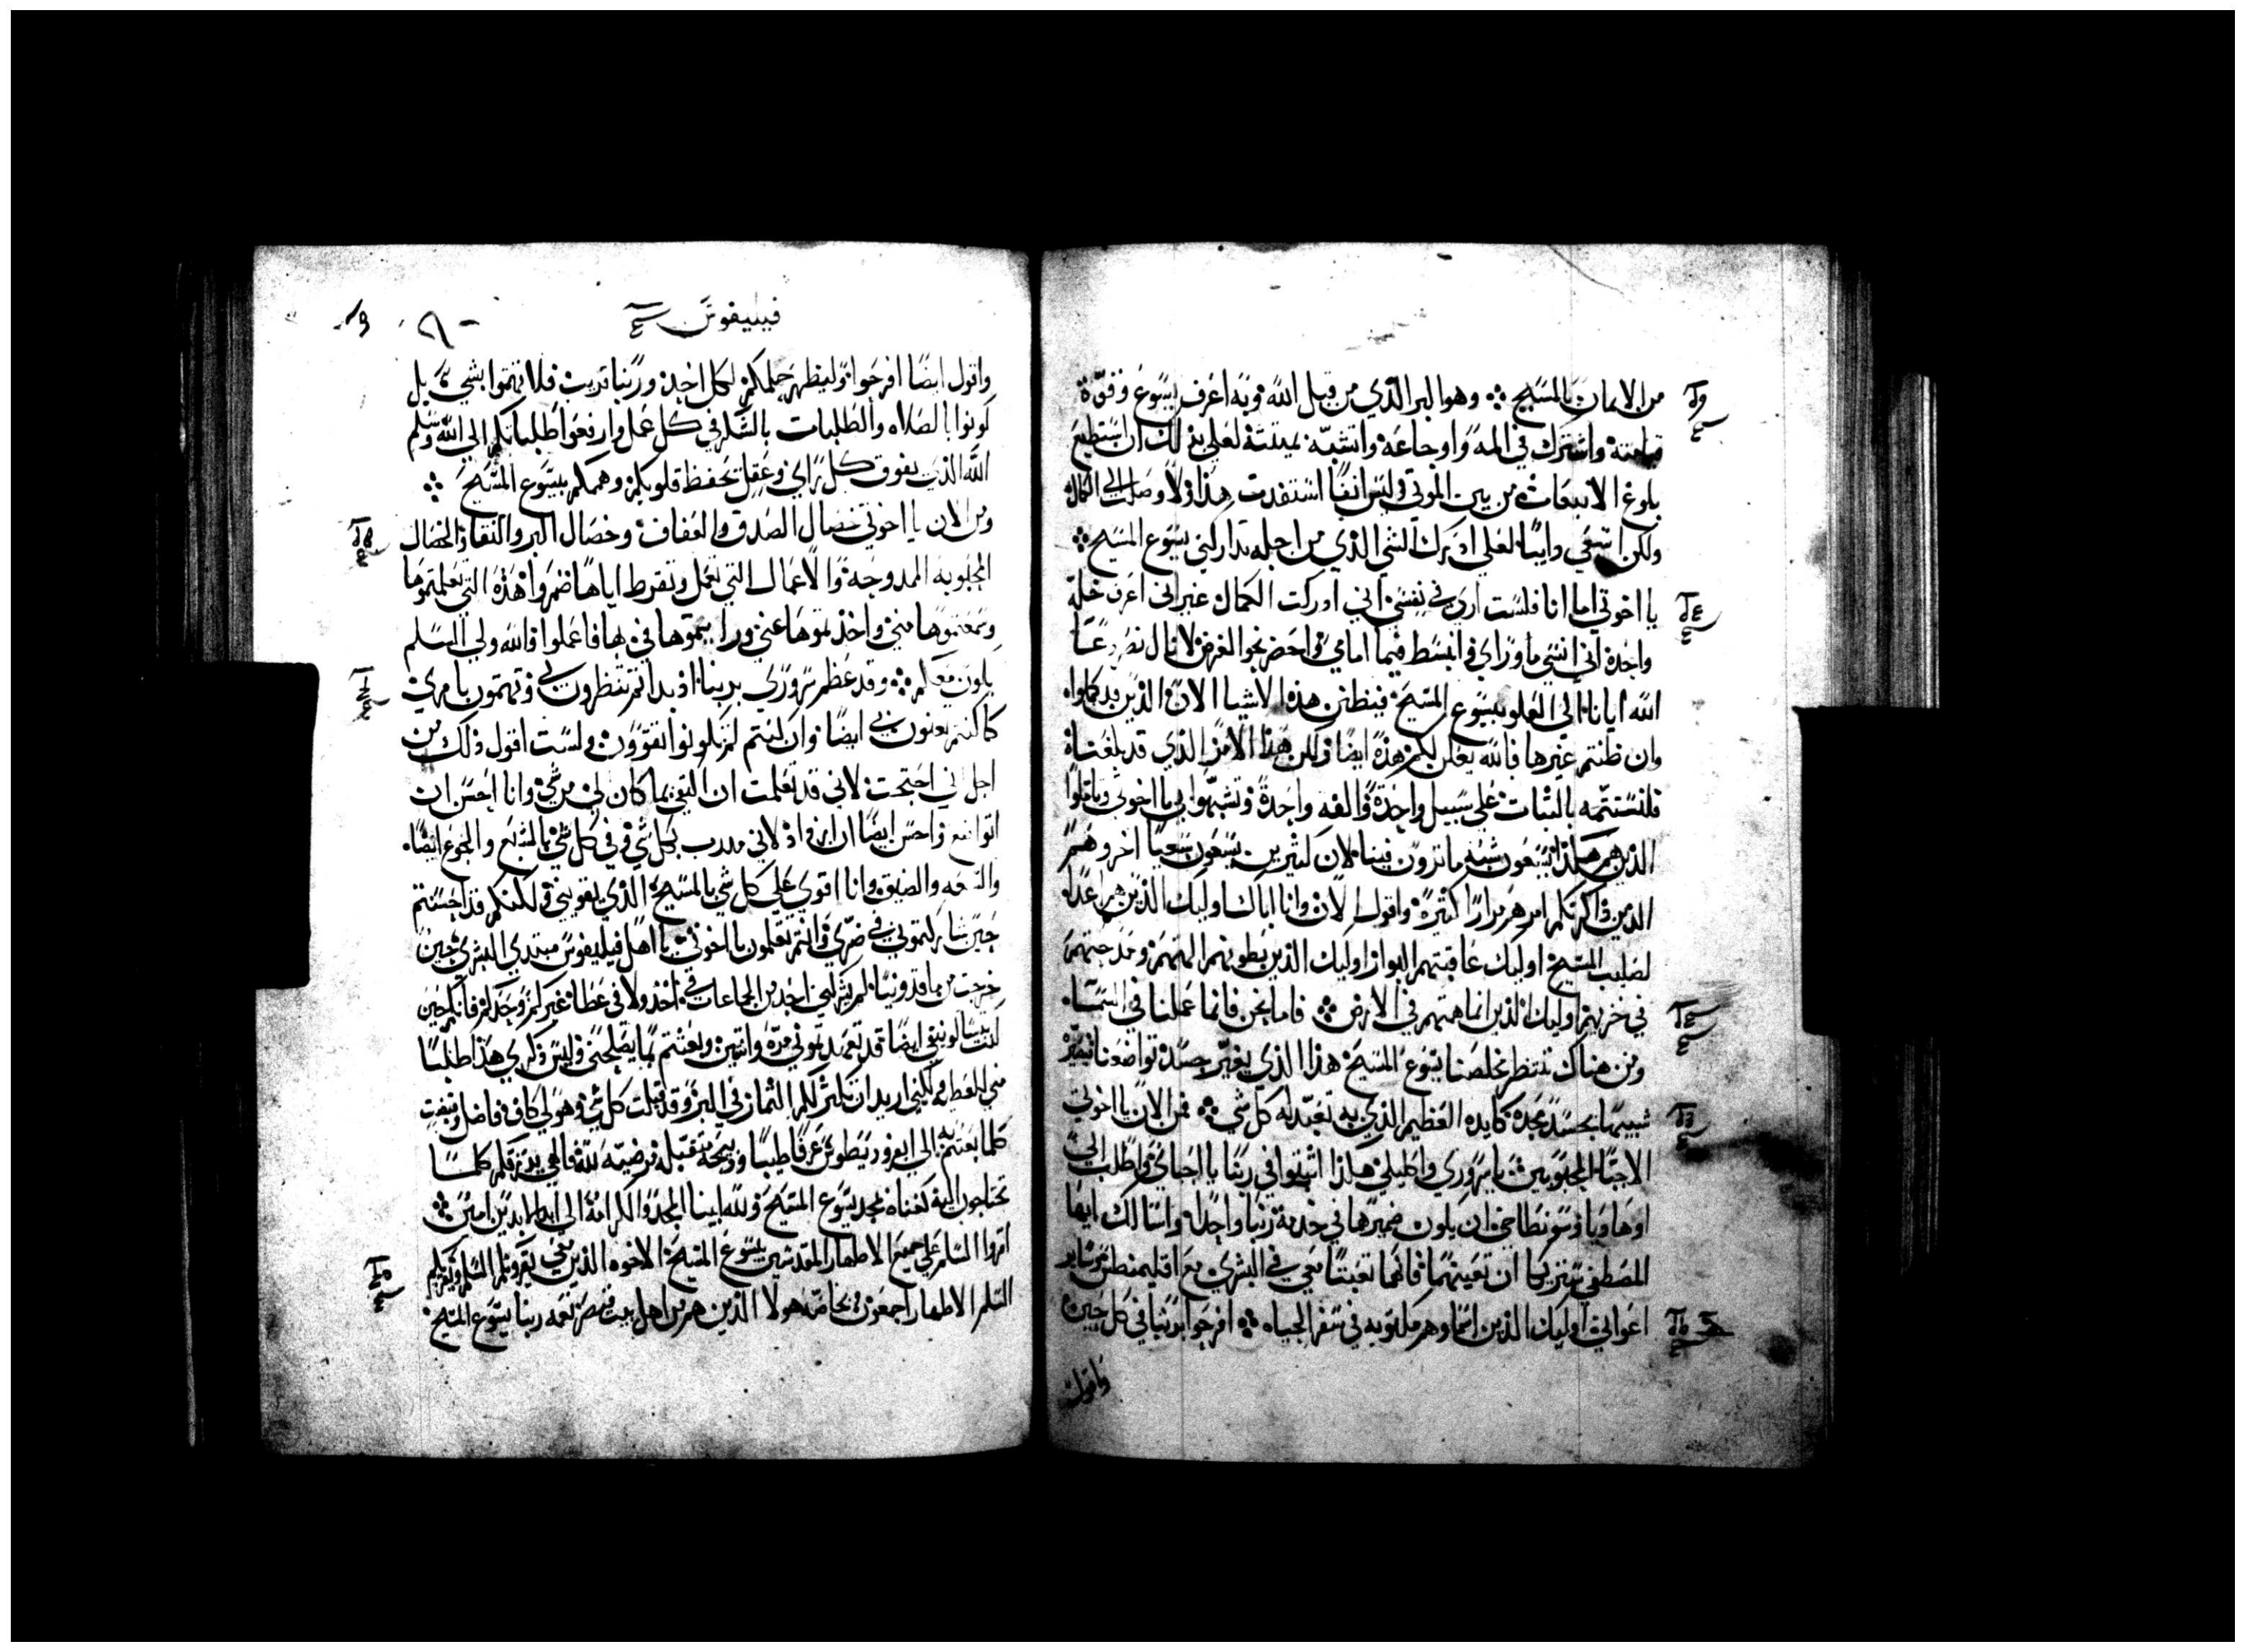 من الايمان بالمسيح وهو البر الذي من قبل الله وبه اعرف يسوع وقوة
قيامته واشترك في المه واوجاعه واتشبه بميتته لعلي بذلك ان استطيع
بلوغ الانبعاث من بين الموتي وليس انفا استفدت هذا ولا وصلت الي الكمال
ولكن اسعي دايبا لعلي ادرك الشي الذي من اجله تداركني يسوع المسيح
يا اخوتي اما انا فلست اري في نفسي اني ادركت الكمال غير اني اعرف خلة
واحدة اني انسي ما وراي وانبسط فيما امامي واحضر نحو الغرض لانال
الله ايانا الي العلو بيسوع المسيح فيظن هذه الاشيا الان الذين قد كملوا
وان ظننتم غيرها فالله يعلن لكم هذه ايضا ولكن هذا الامر الذي قد بلغناه
فلنستتمه بالثبات علي سبيل واحدة والفه واحدة وتشبهوا بي يا اخوتي وتاملوا
الذين هم هكذا يسعون شبه ما ترون فينا لان كثيرين يسعون سعيا اخر وهم
الذين ذاكرتكم امرهم مرارا كثيرة واقول الان وانا اباك اوليك الذين هم اعدا
لصليب المسيح اوليك عاقبتهم البوار اوليك الذين بطونهم الهتهم ومدحتهم
في خزيهم اوليك الذين انما همتهم في الارض فاما نحن فانما عملنا في السما
ومن هناك ننتظر مخلصنا يسوع المسيح هذا الذي يغير جسد تواضعنا
شبيها بجسد مجده كايده العظيم الذي به تعبد له كل شي فمن الان يا اخوتي
الاحبا المحبوبين يا سروري واكليلي هكذا اثبتوا في ربنا يا احباي واطلب الي
اوهاديا وسونطاخي ان يكون ضميرها في خدمة ربنا واحدا واسالك ايها
المصطفي شريكا ان تعينهما فانهما تعبتا معي في البشري مع اقليمنطس وساير
اعواني اوليك الذين اسماوهم مكتوبه في سفر الحياه افرحوا بربنا في كل حين
واقول
فيليفوس
واقول ايضا افرحوا وليظهر حلمكم لكل احد وربنا قريب فلا تهتموا بشي بل
كونوا بالصلاه والطلبات بالشكر في كل عمل وارفعوا طلباتكم الي الله وسلم
الله الذي يفوق كل راي وعقل تحفظ قلوبكم وهممكم بيسوع المسيح
ومن الان يا اخوتي خصال الصدق والعفاف وخصال البر والنقا والخصال
المحبوبه الممدوحة والاعمال التي تعمل وتقرظ اياها اضمروا هذه التي تعلمتموها
وسمعتموها مني واخذتموها عني ورايتموها في بها فاعملوا والله ولي السلم
يكون معكم وقد عظم سروري بربنا اذ بداتم تنتظرون لي وتهتمون بامري
كما كنتم تعنون بي ايضا وان كنتم لم تكونوا تقوون ولست اقول ذلك من
اجل اني احتجت لاني قد تعلمت ان اكتفي بما كان لي من شي وانا احسن ان
اتواضع واحسن ايضا ان ازداد لاني مدرب بكل شي وفي كل شي بالشبع والجوع ايضا
والسعه والضيق وانا اقوي علي كل شي بالمسيح الذي يقويني ولكنكم قد احسنتم
حين شاركتموني في ضري وانتم تعلمون يا اخوتي يا اهل فيليفوس مبتدي البشري حين
خرجت من ماقدونيا لم يشركني احد من الجماعات في اخذ ولا في عطا غيركم وحدكم فانكم حين
كنت بتسالونيقي ايضا قد تعمدتموني مره واثنتين وبعثتم بما يصلحني وليس ذكري هذا طلبا
مني للعطيه ولكني اريد ان تكثر لكم الثمار في البر وقد قبلت كل شي وهو لي كاف فاضل وقبضت
كلما بعثتم به الي مع ابفروديطوس عرفا طيبا وذبيحه متقبله مرضيه لله والهي يرزقكم كلما
تحتاجون اليه كغناه بمجد يسوع المسيح ولله ابينا المجد والكرامة الي ابد الابدين امين
اقروا السلم علي جميع الاطهار المقدسين بيسوع المسيح الاخوه الذين معي يقرونكم السلم ويقريكم
السلم الاطهار اجمعون وبخاصه هولا الذين هم من اهل بيت قيصر نعمه ربنا يسوع المسيح